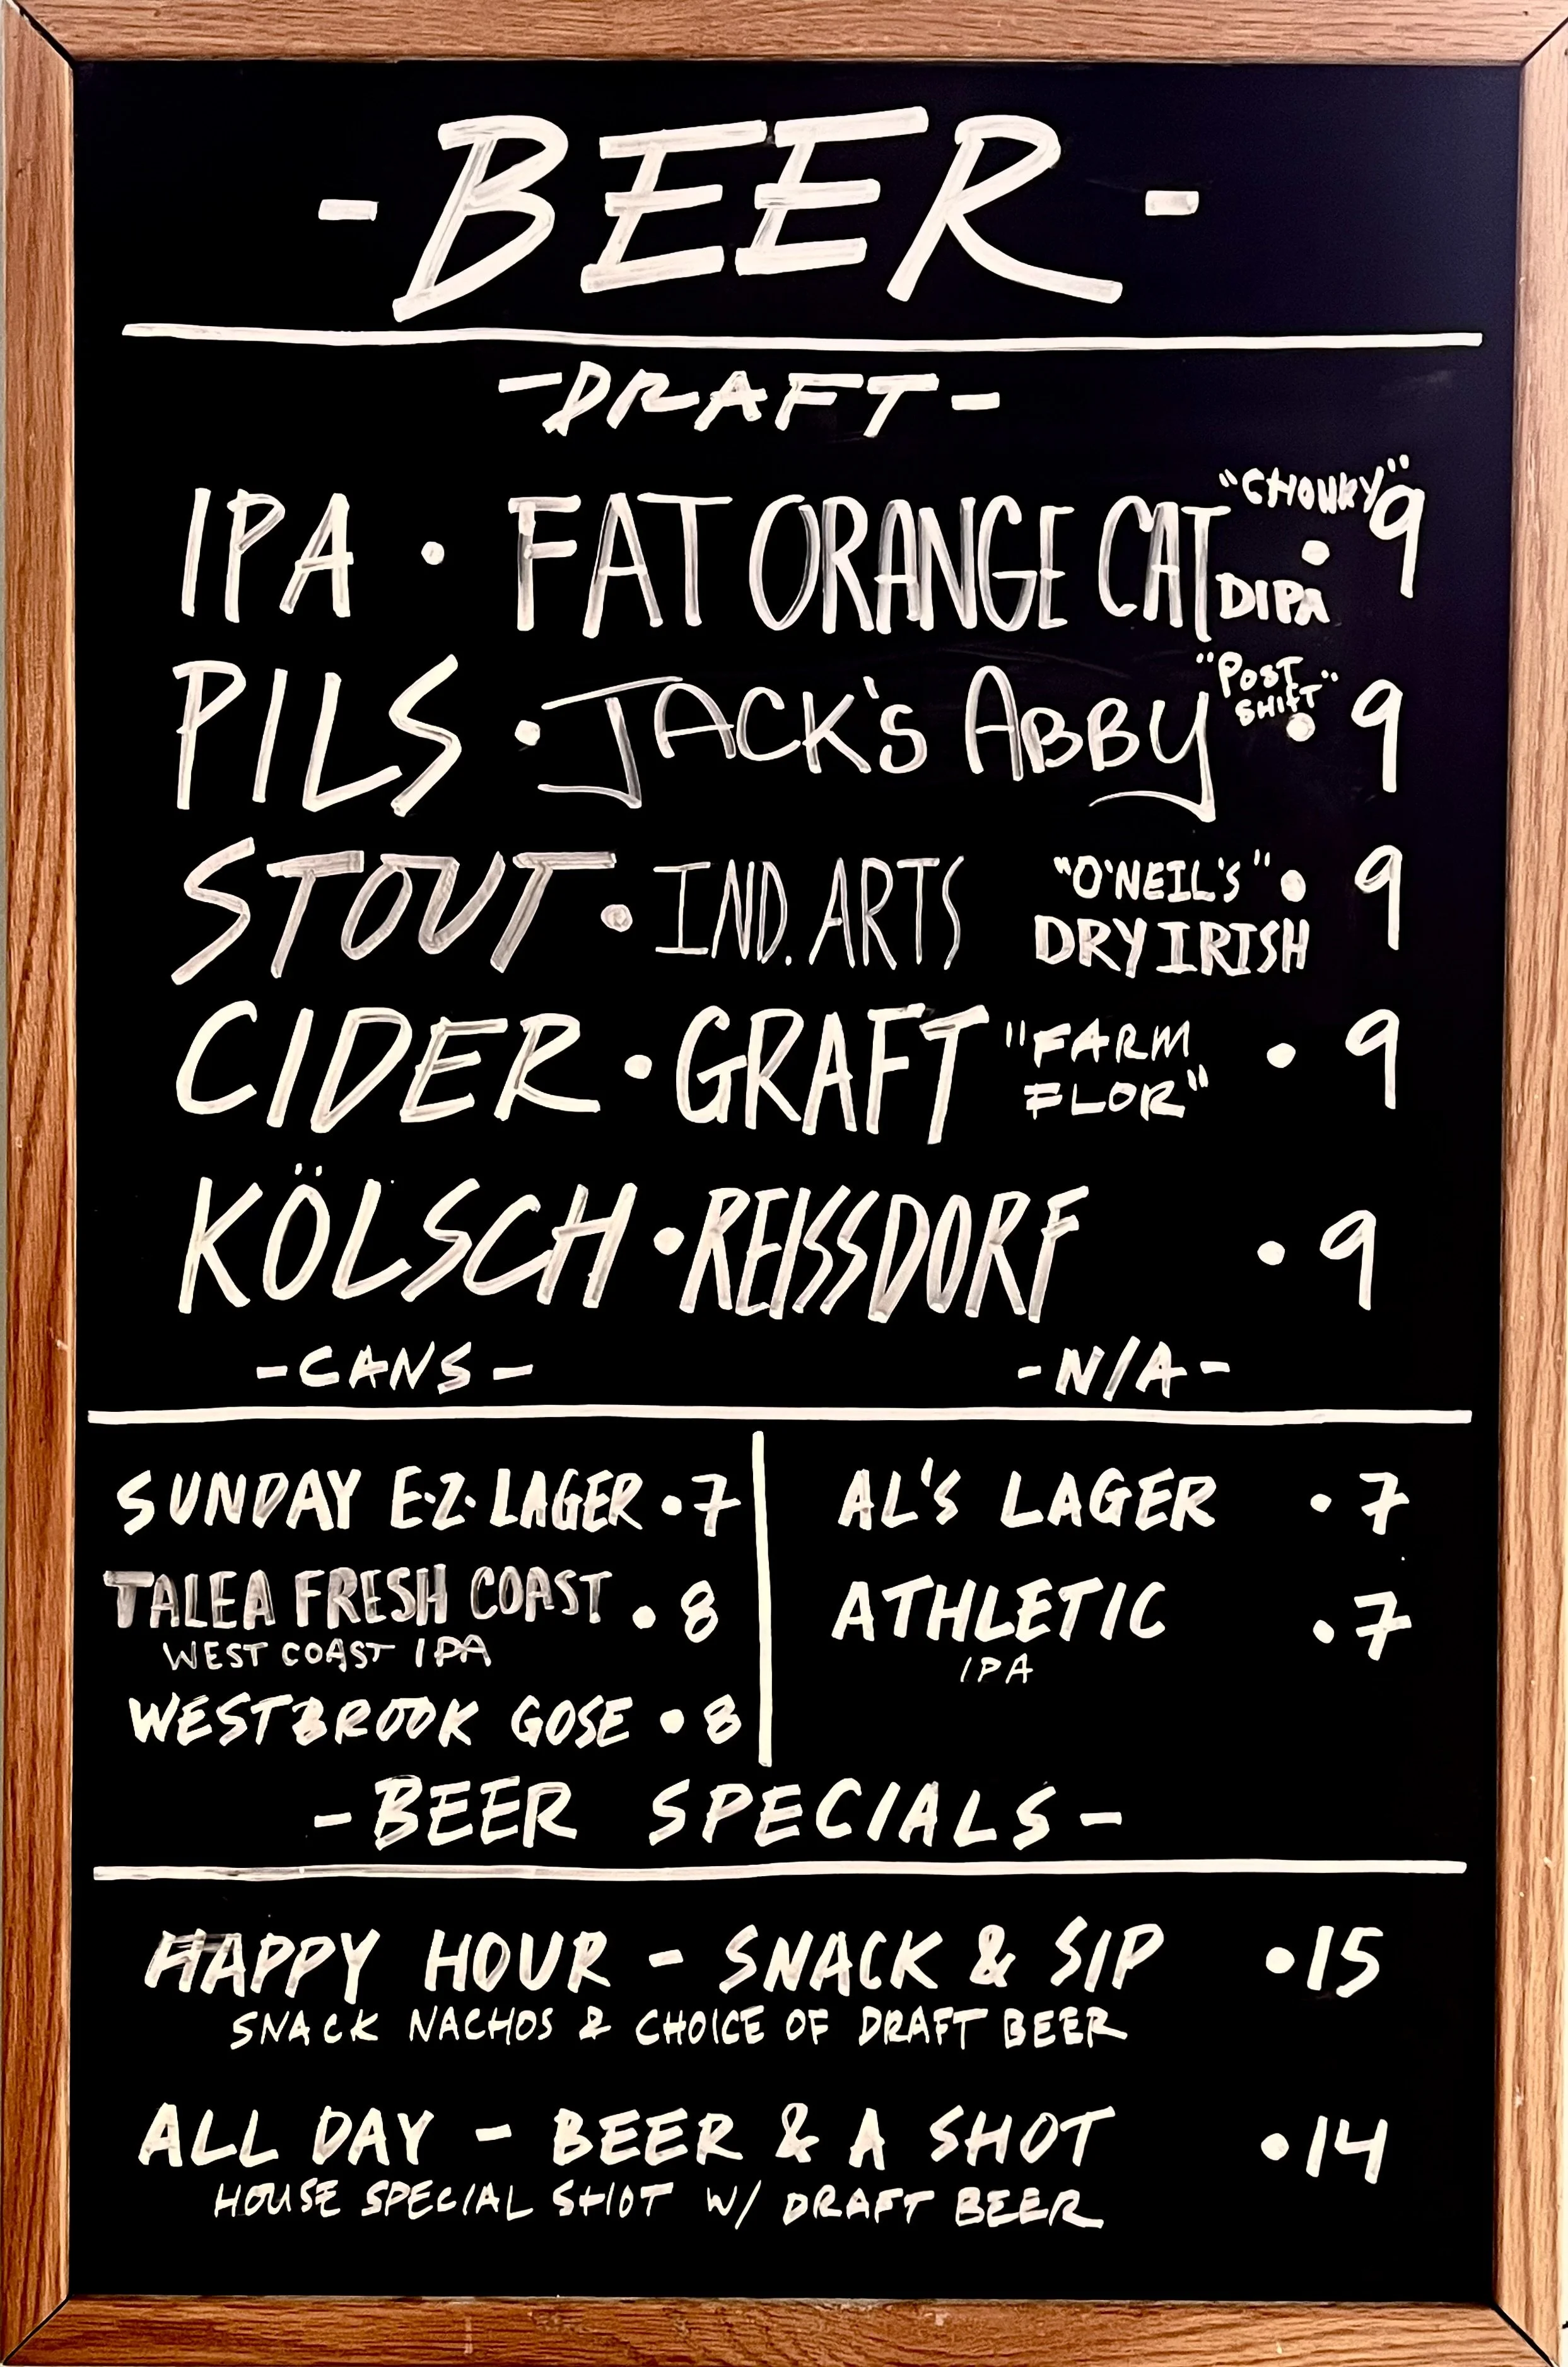 - BEER -
- DRAFT -
IPA • FAT ORANGE CAT "CHONKY" DIPA • 9
PILS • JACK'S ABBY "POST SHIFT" • 9
STOUT • IND. ARTS "O'NEIL'S" DRY IRISH • 9
CIDER • GRAFT "FARM FLOR" • 9
KÖLSCH • REISSDORF • 9
- CANS -
SUNDAY E·Z· LAGER • 7
TALEA FRESH COAST • 8
WEST COAST IPA
WESTBROOK GOSE • 8
- N/A -
AL'S LAGER • 7
ATHLETIC • 7
IPA
- BEER SPECIALS -
HAPPY HOUR - SNACK & SIP • 15
SNACK NACHOS & CHOICE OF DRAFT BEER
ALL DAY - BEER & A SHOT • 14
HOUSE SPECIAL SHOT W/ DRAFT BEER